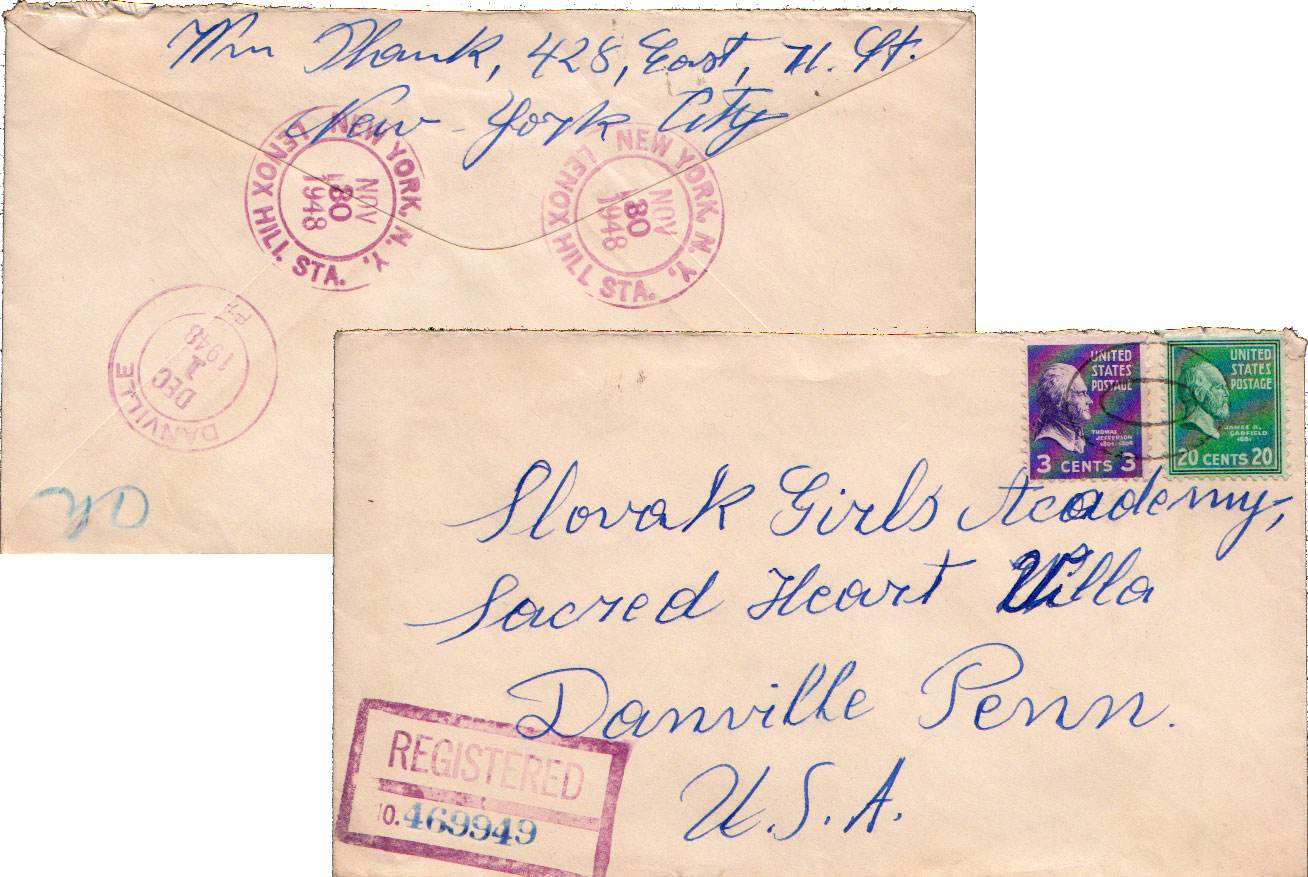 Wm Thank, 428, East, 71. St.
New-York City
LENOX HILL STA. NEW YORK, N.Y.
NOV
30
1948
LENOX HILL STA. NEW YORK, N.Y.
NOV
30
1948
DANVILLE PA
DEC
1
1948
UNITED
STATES
POSTAGE
THOMAS
JEFFERSON
1801-1809
3 CENTS 3
UNITED
STATES
POSTAGE
JAMES A.
GARFIELD
1881
20 CENTS 20
Slovak Girls Academy,
Sacred Heart Villa
Danville Penn.
U.S.A.
REGISTERED
NO. 469949